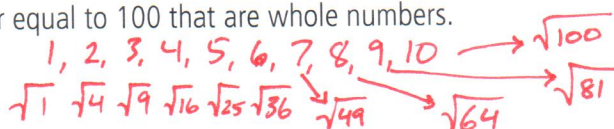 r equal to 100 that are whole numbers.
1, 2, 3, 4, 5, 6, 7, 8, 9, 10 → √100
√1 √4 √9 √16 √25 √36 √49 √64 √81